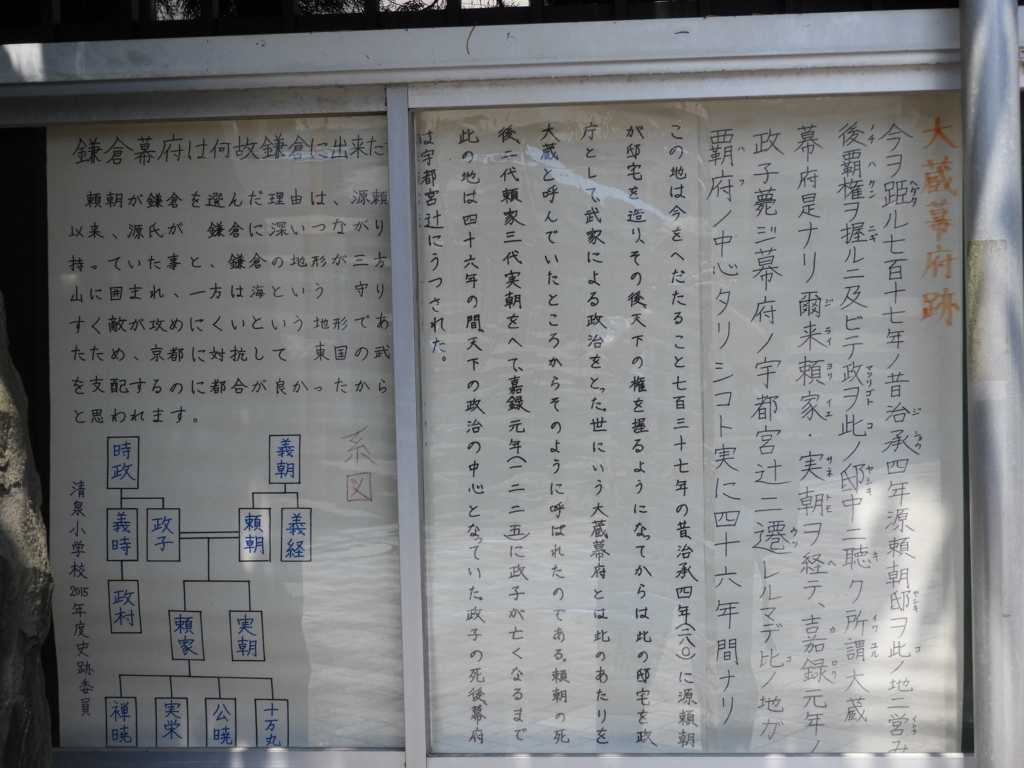 大蔵幕府跡
今ヲ距ル七百十七年ノ昔治承四年源頼朝邸ヲ此ノ地ニ営み
後覇権ヲ握ルニ及ビテ政ヲ此ノ邸中ニ聴ク所謂大蔵
幕府是ナリ爾来頼家・実朝ヲ経テ、嘉録元年ノ
政子薨ジ幕府ノ宇都宮辻ニ遷レルマデ此ノ地が
覇府ノ中心タリシコト実に四十六年間ナリ
この地は今をへだたること七百三十七年の昔治承四年(一一八〇)に源頼朝
が邸宅を造り、その後天下の権を握るようになってからは此の邸宅を政
庁として、武家による政治をとった。世にいう大蔵幕府とは此のあたりを
大蔵と呼んでいたところからそのように呼ばれたのである。頼朝の死
後二代頼家三代実朝をへて、嘉録元年(一二二五)に政子が亡くなるまで
此の地は四十六年の間、天下の政治の中心となっていた。政子の死後幕府
は宇都宮辻にうつされた。
鎌倉幕府は何故鎌倉に出来た
頼朝が鎌倉を選んだ理由は、源頼
以来、源氏が 鎌倉に深いつながり
持っていた事と、鎌倉の地形が三方
山に囲まれ、一方は海という 守り
すく敵が攻めにくいという地形であ
たため、京都に対抗して 東国の武
を支配するのに都合が良かったから
と思われます。
系図
時政
義朝
義時
政子
頼朝
義経
政村
頼家
実朝
禅暁
実栄
公暁
十万丸
清泉小学校2015年度史跡委員